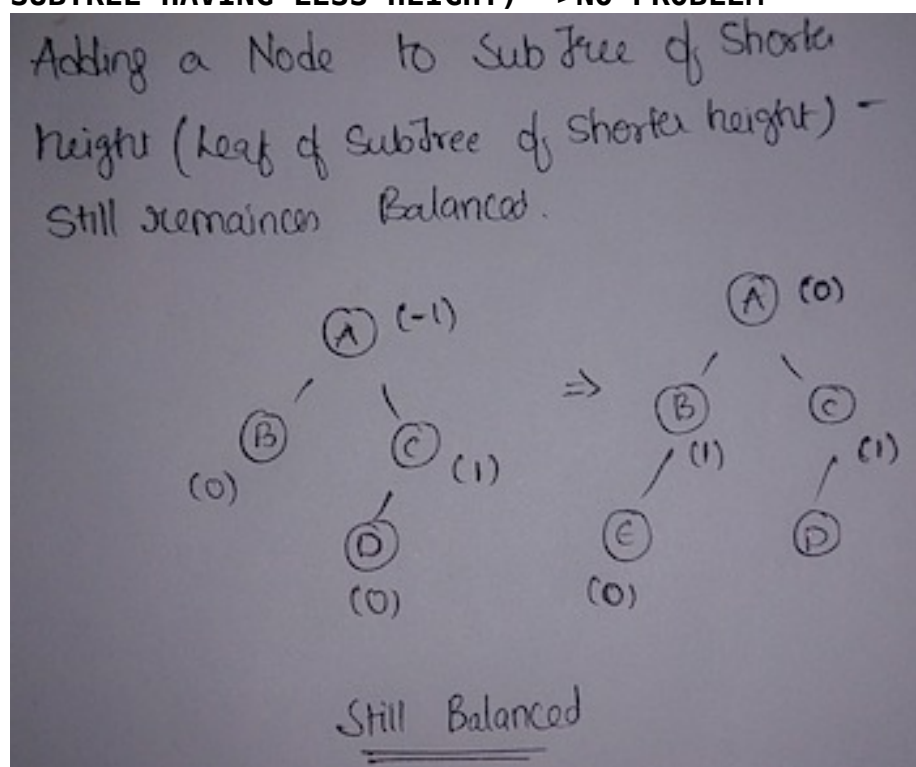 SUBTREE HAVING LESS HEIGHT) ->NO PROBLEM
Adding a Node to SubTree of Shorter
height (Leaf of SubTree of Shorter height) -
Still remainces Balanced.
A (-1)
B
C
(0)
(1)
D
(0)
⇒
A (0)
B
C
(1)
(1)
E
D
(0)
Still Balanced